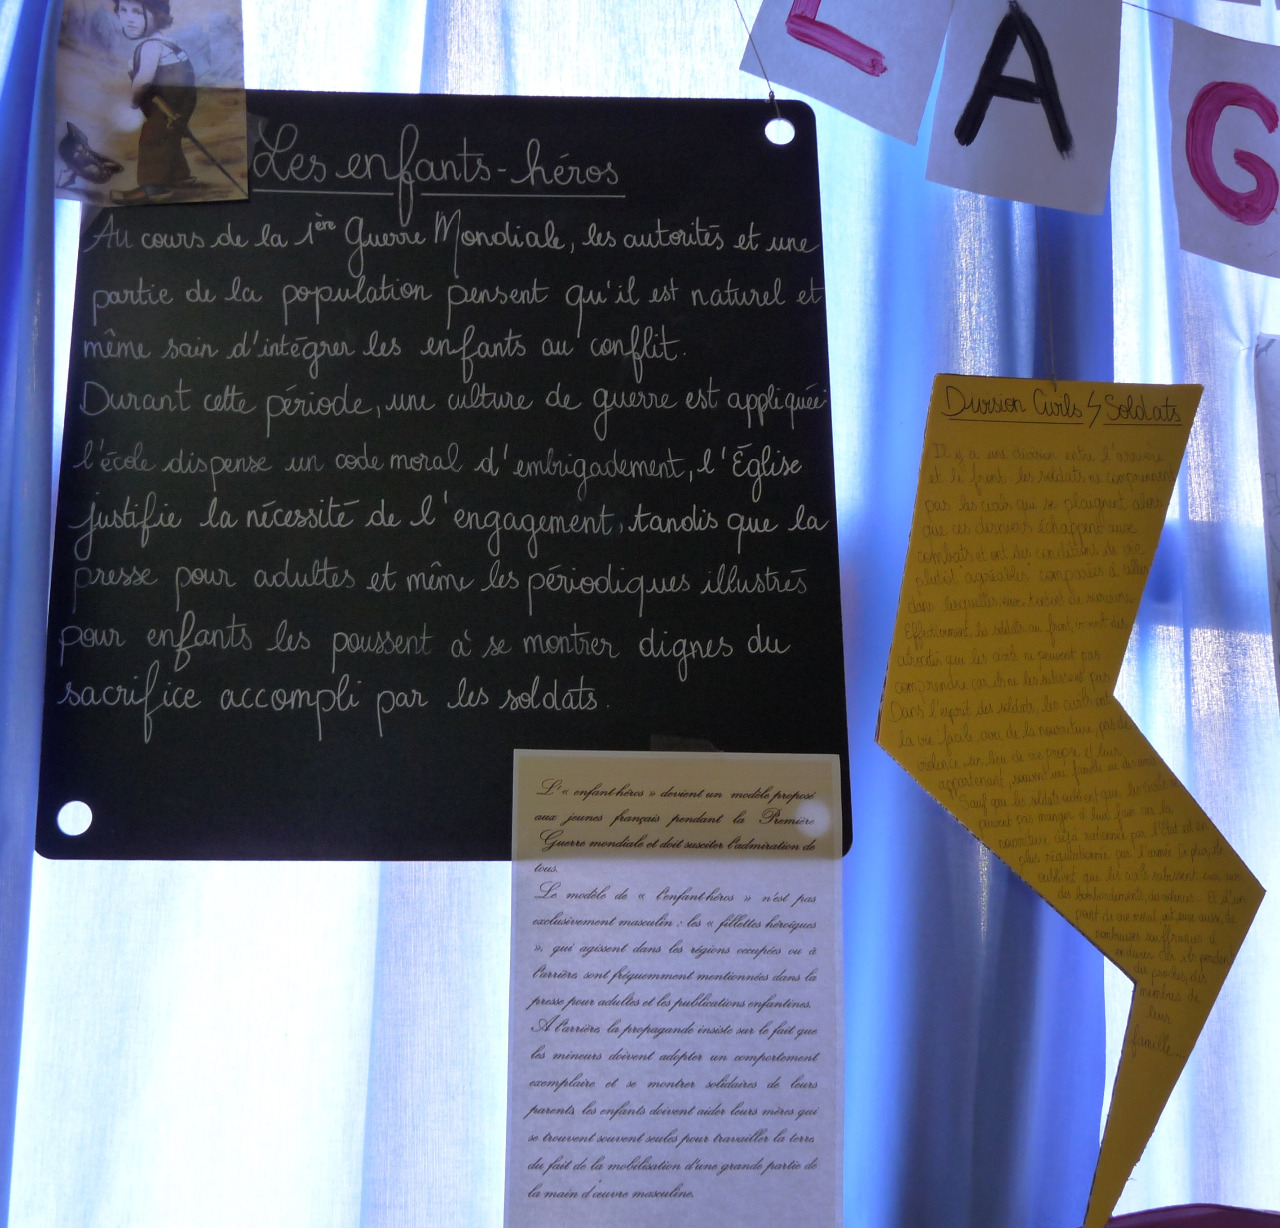 L A G
Les enfants-héros
Au cours de la 1ère Guerre Mondiale, les autorités et une
partie de la population pensent qu'il est naturel et
même sain d'intégrer les enfants au conflit.
Durant cette période, une culture de guerre est appliquée:
l'école dispense un code moral d'embrigadement, l'Église
justifie la nécessité de l'engagement, tandis que la
presse pour adultes et même les périodiques illustrés
pour enfants les poussent à se montrer dignes du
sacrifice accompli par les soldats.
L'« enfant-héros » devient un modèle proposé
aux jeunes français pendant la Première
Guerre mondiale et doit susciter l'admiration de
tous.
Le modèle de « l'enfant-héros » n'est pas
exclusivement masculin : les « fillettes héroïques
», qui agissent dans les régions occupées ou à
l'arrière, sont fréquemment mentionnées dans la
presse pour adultes et les publications enfantines.
A l'arrière, la propagande insiste sur le fait que
les mineurs doivent adopter un comportement
exemplaire et se montrer solidaires de leurs
parents, les enfants doivent aider leurs mères qui
se trouvent souvent seules pour travailler la terre
du fait de la mobilisation d'une grande partie de
la main d'œuvre masculine.
Division Civils Soldats
Il y a une division entre l'arrière
et le front. les soldats ne comprennent
pas les civils qui se plaignent alors
que ces derniers échappent aux
combats et ont des conditions de vie
plutôt "agréables" comparées à celles
dans lesquelles eux tentent de survivre.
Effectivement, les soldats au front, vivent des
atrocités que les civils ne peuvent pas
comprendre car ils ne les subissent pas.
Dans l'esprit des soldats, les civils ont
la vie facile, avec de la nourriture, pas de
violence, un lieu de vie propre et leur
appartenant, souvent une famille
Sauf que les soldats oublient que les civils ne
peuvent pas manger à leur faim car la
nourriture déjà rationnée par l'État est en
plus réquisitionnée par l'armée. De plus, ils
oublient que les civils subissent eux aussi
des bombardements, Et d'un
point de vue moral, ont eux aussi, de
nombreuses souffrances à
endurer car ils perdent
des proches, des
membres de
leur
famille...